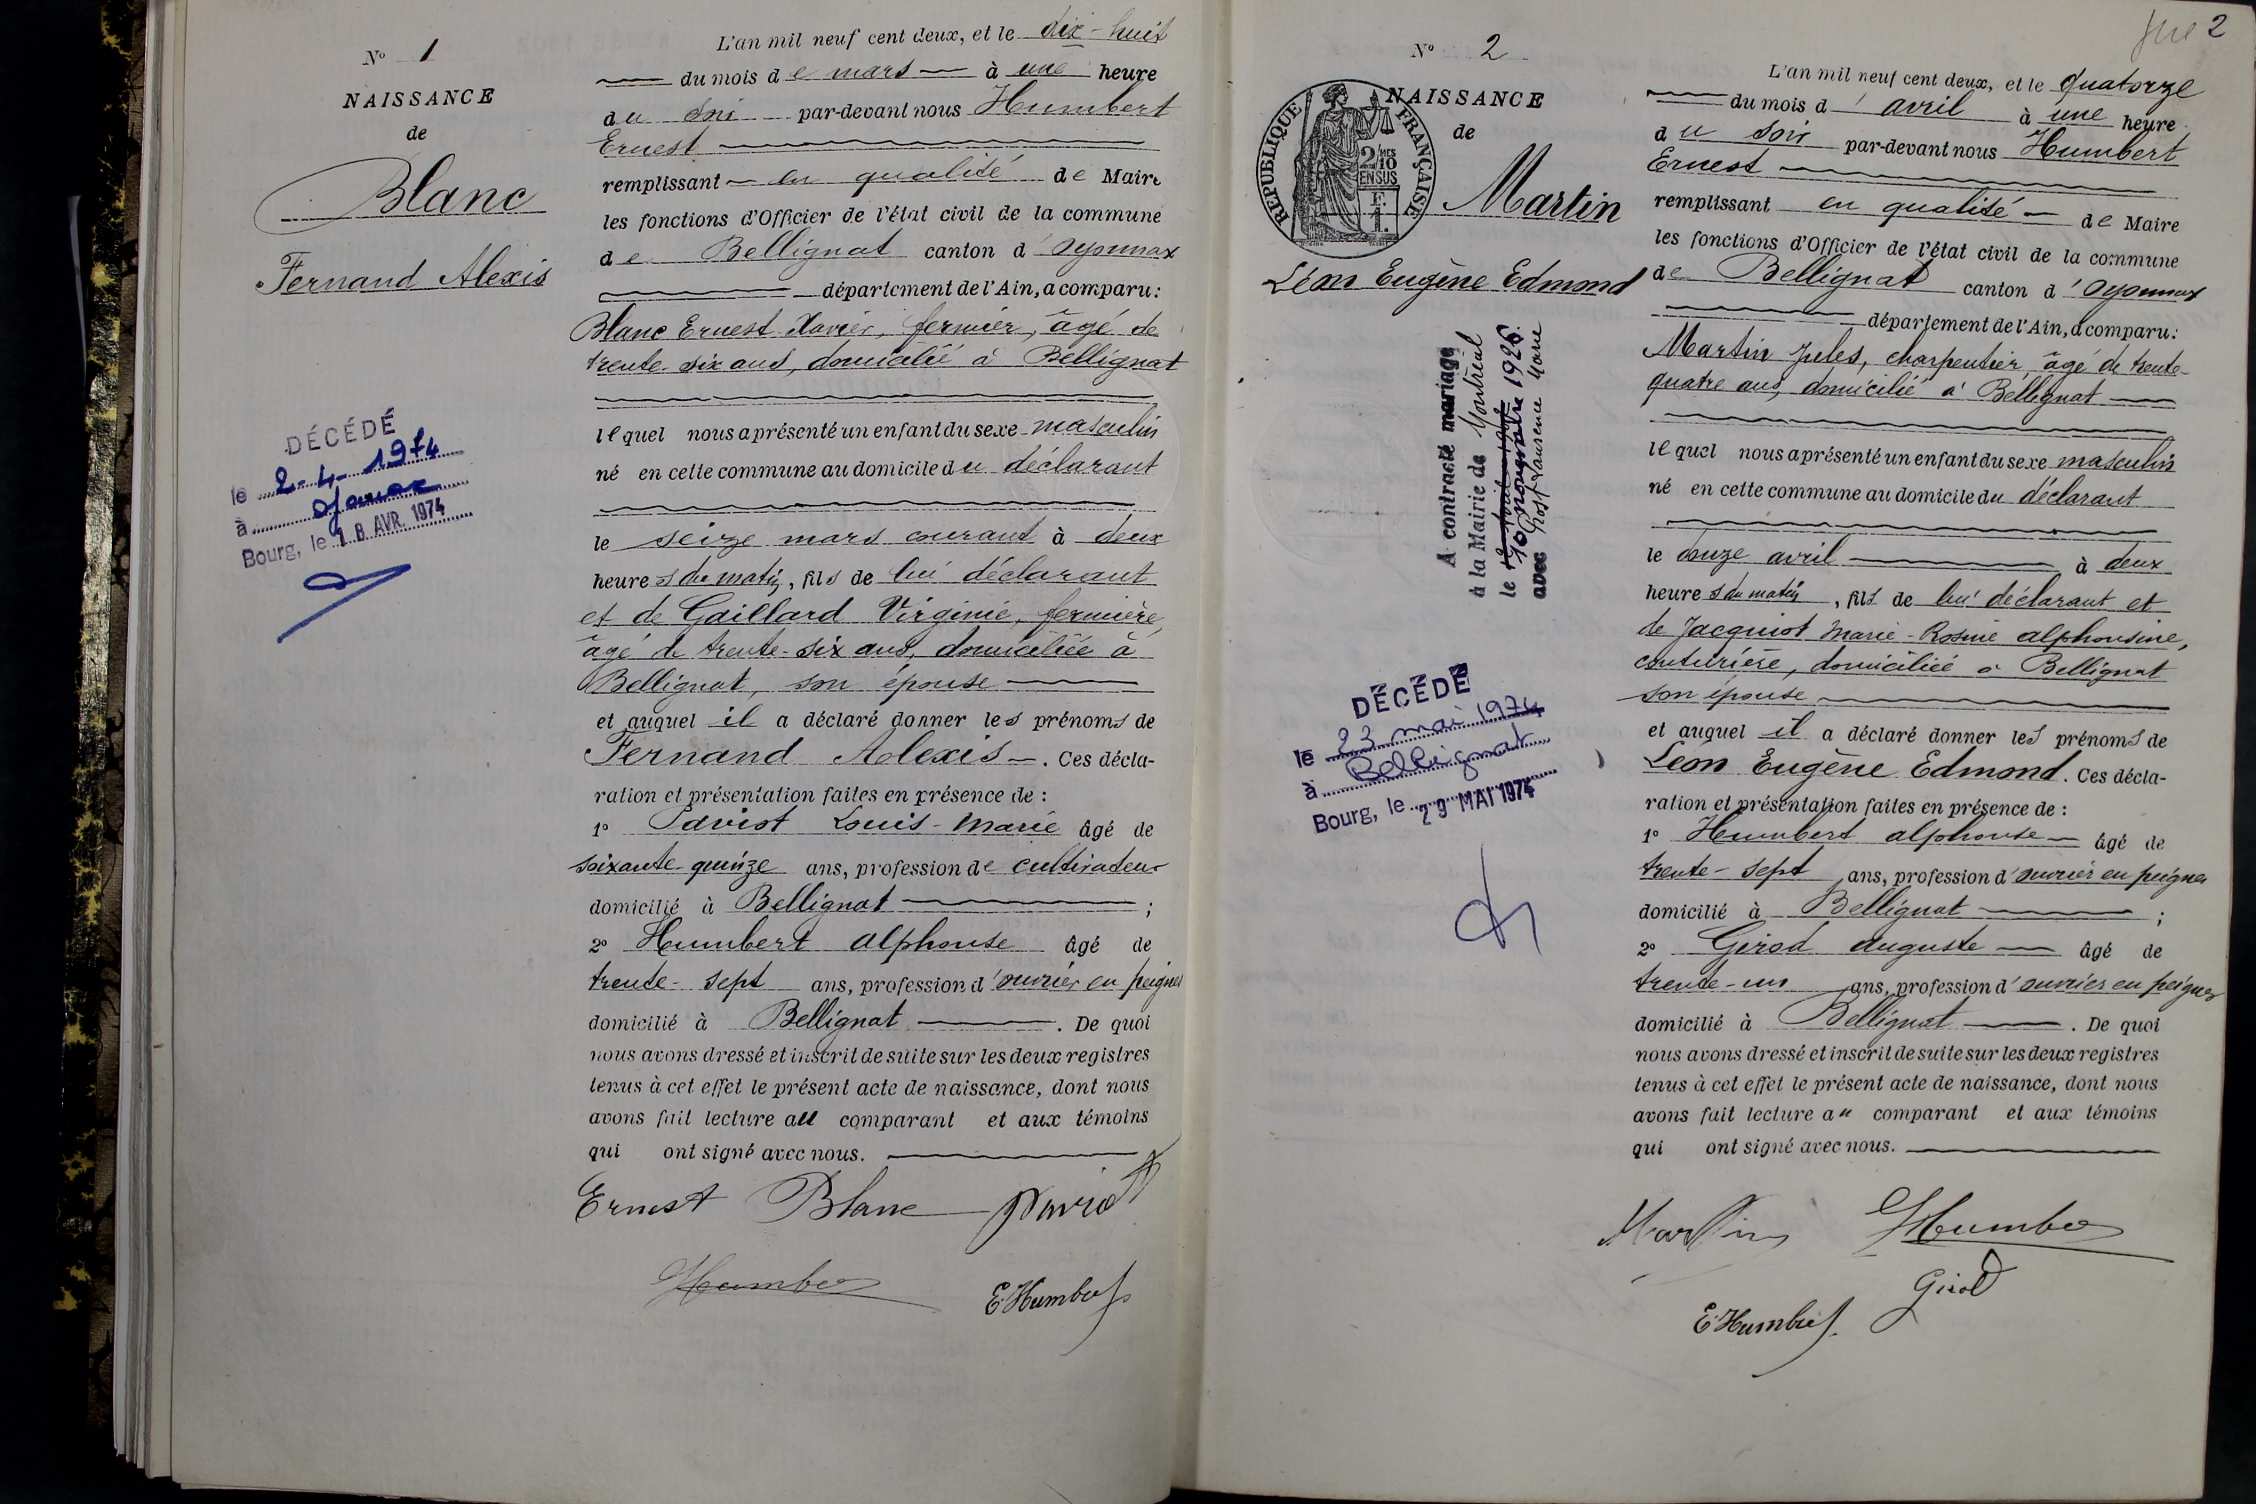 No 1
NAISSANCE
de
Blanc
Fernand Alexis
DÉCÉDÉ
le 2-4-1974
à
Bourg, le 18 AVR. 1974
L'an mil neuf cent deux, et le dix-huit
du mois de mars à une heure
du soir par-devant nous Humbert
Ernest
remplissant en qualité de Maire
les fonctions d'Officier de l'état civil de la commune
de Bellignat canton d'Oyonnax
département de l'Ain, a comparu:
Blanc Ernest Xavier, fermier, âgé de
trente-six ans, domicilié à Bellignat
lequel nous a présenté un enfant du sexe masculin
né en cette commune au domicile du déclarant
le seize mars courant à deux
heures du matin, fils de lui déclarant
et de Gaillard Virginie, fermière,
âgé de trente-six ans, domiciliée à
Bellignat, son épouse
et auquel il a déclaré donner les prénoms de
Fernand Alexis. Ces décla-
ration et présentation faites en présence de :
1o Saviot Louis-Marie âgé de
soixante-quinze ans, profession de cultivateur
domicilié à Bellignat ;
2o Humbert alphonse âgé de
trente-sept ans, profession d'ouvrier en peignes
domicilié à Bellignat. De quoi
nous avons dressé et inscrit de suite sur les deux registres
tenus à cet effet le présent acte de naissance, dont nous
avons fait lecture au comparant et aux témoins
qui ont signé avec nous.
Ernest Blanc
E. Humbert
fue 2
No 2
NAISSANCE
de
RÉPUBLIQUE FRANÇAISE
2/10 MES EN SUS
F. 1.
Martin
Léon Eugène Edmond
A contracté mariage
à la Mairie de Montréal
le 10 novembre 1926
avec
DÉCÉDÉ
le 23 mai 1974
à Bellignat
Bourg, le 29 MAI 1974
L'an mil neuf cent deux, et le quatorze
du mois d'avril à une heure
du soir par-devant nous Humbert
Ernest
remplissant en qualité de Maire
les fonctions d'Officier de l'état civil de la commune
de Bellignat canton d'Oyonnax
département de l'Ain, a comparu:
Martin Jules, charpentier, âgé de trente-
quatre ans, domicilié à Bellignat
lequel nous a présenté un enfant du sexe masculin
né en cette commune au domicile du déclarant
le douze avril à deux
heures du matin, fils de lui déclarant et
de Jacquiot Marie-Rosine alphonsine,
couturière, domiciliée à Bellignat
son épouse
et auquel il a déclaré donner les prénoms de
Léon Eugène Edmond. Ces décla-
ration et présentation faites en présence de :
1o Humbert alphonse âgé de
trente-sept ans, profession d'ouvrier en peignes
domicilié à Bellignat ;
2o Girod auguste âgé de
trente-un ans, profession d'ouvrier en peignes
domicilié à Bellignat. De quoi
nous avons dressé et inscrit de suite sur les deux registres
tenus à cet effet le présent acte de naissance, dont nous
avons fait lecture au comparant et aux témoins
qui ont signé avec nous.
Martin
Girod
E. Humbert